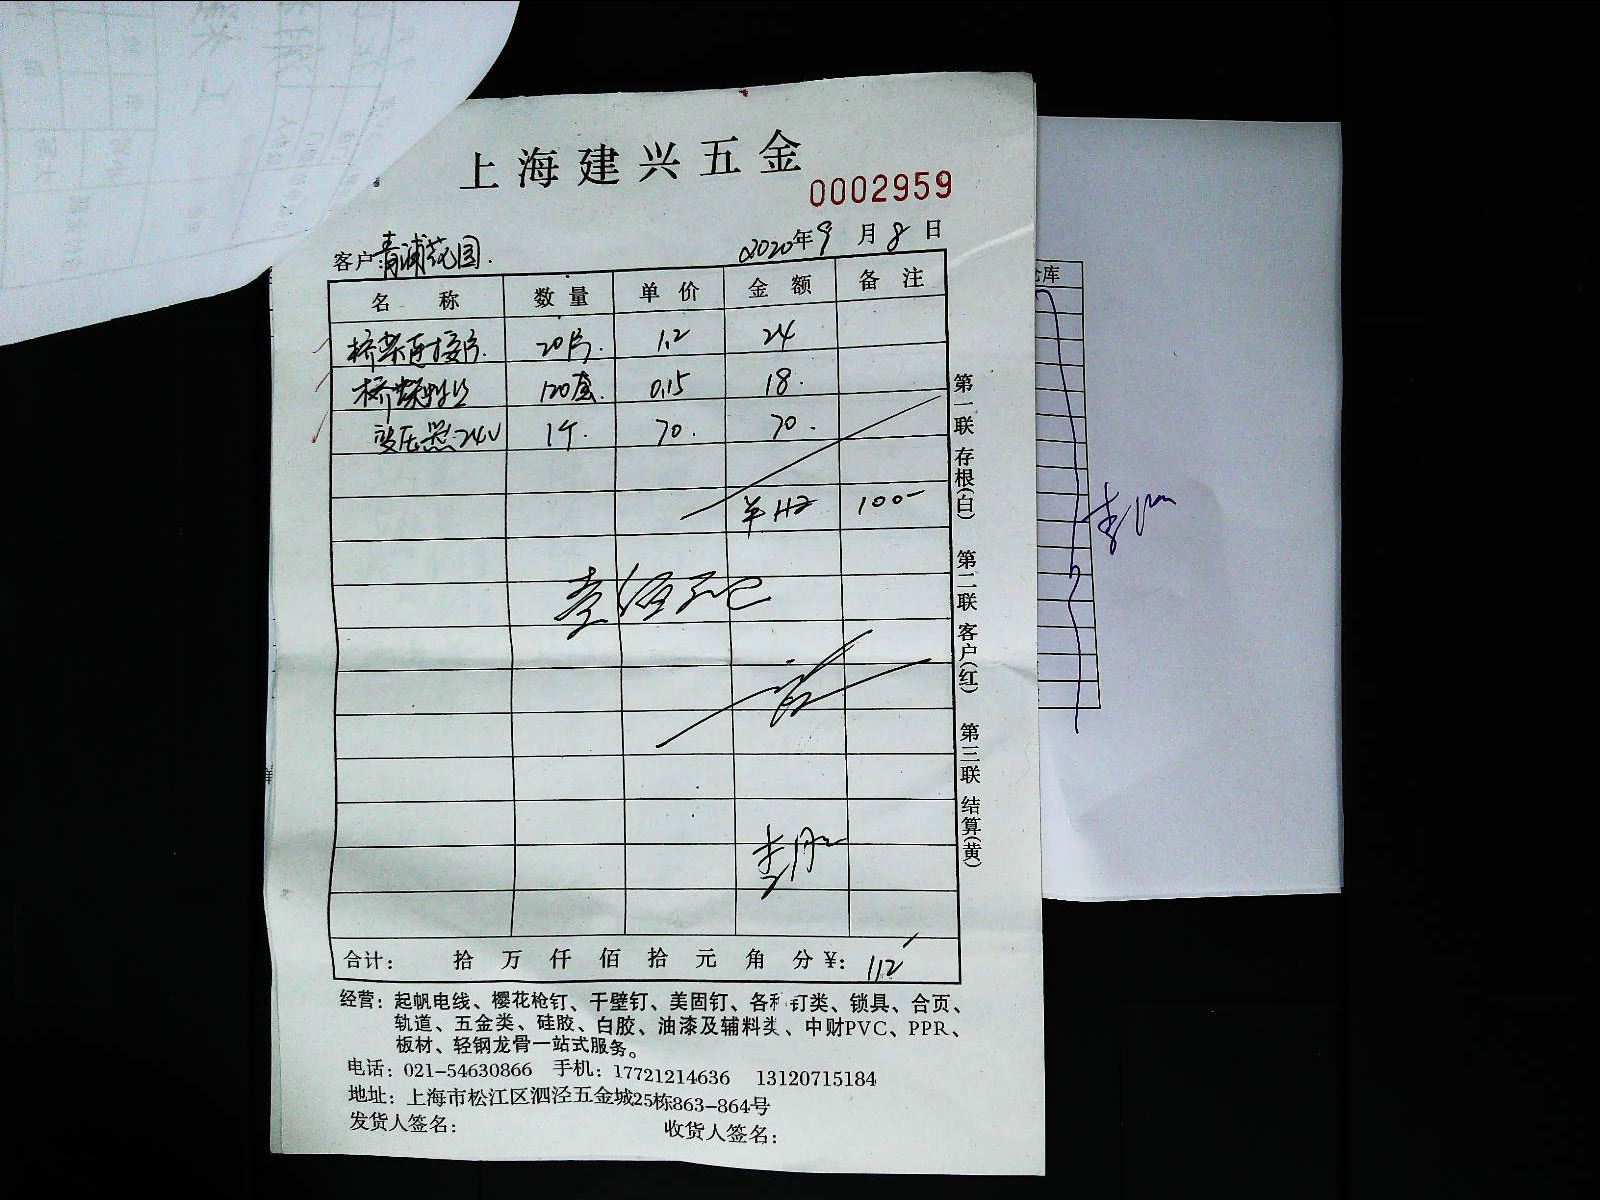 上海建兴五金
0002959
客户 青浦花园. 2020年9月8日
名称 数量 单价 金额 备注
桥架连接片. 20片. 1.2 24
桥架螺丝 120套. 0.15 18.
变压器.24V 1个. 70. 70.
100-
李
合计: 拾 万 仟 佰 拾 元 角 分 ¥: 112
第一联 存根(白) 第二联 客户(红) 第三联 结算(黄)
经营: 起帆电线、樱花枪钉、干壁钉、美固钉、各种钉类、锁具、合页、
轨道、五金类、硅胶、白胶、油漆及辅料类、中财PVC、PPR、
板材、轻钢龙骨一站式服务。
电话: 021-54630866 手机: 17721214636 13120715184
地址: 上海市松江区泗泾五金城25栋863-864号
发货人签名: 收货人签名:
仓库
李